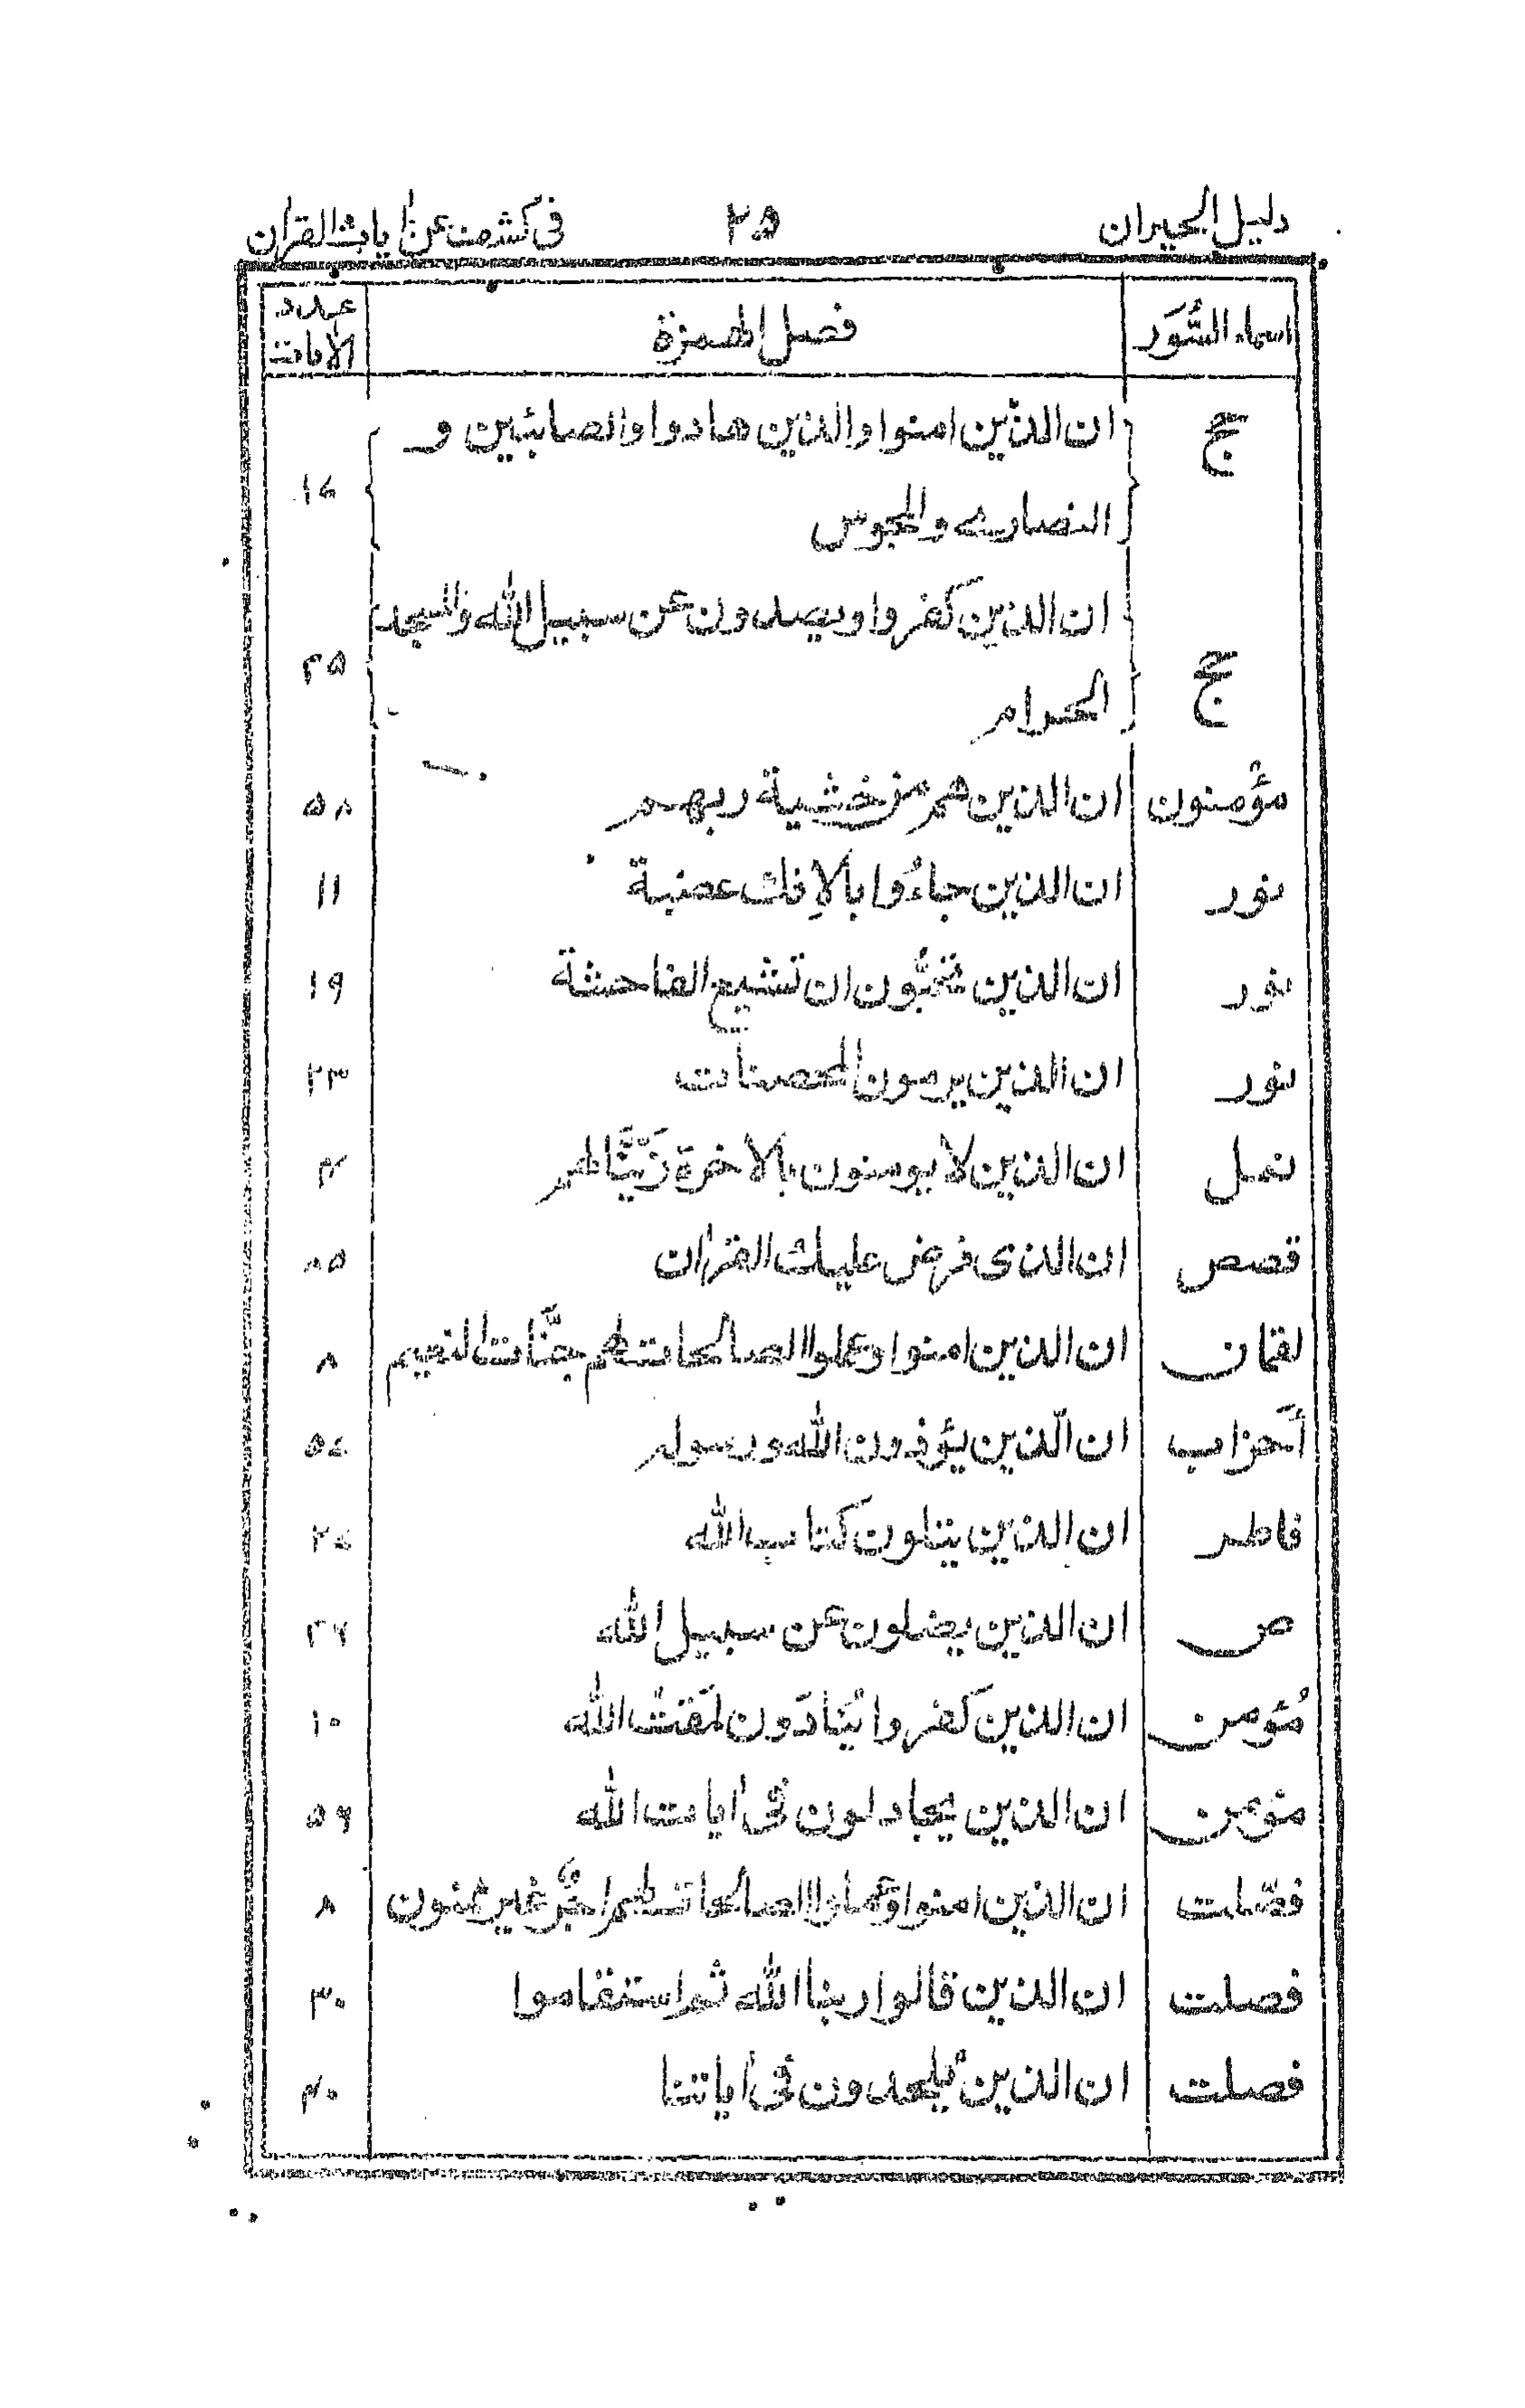 دليل الحيران ٢٥ فى كشف عن اٰيات القراٰن
اسماء السُّوَر فصل الهمزة عدد الاٰيات
حج ان الذّين امنوا والذين هادوا والصابئين و
النصارى والمجوس ١٧
ان الذين كفروا ويصدون عن سبيل الله والمسجد
حج الحرام ٢٥
مؤمنون ان الذين هم من خشية ربهم ٥٨
نور ان الذين جاءُوا بالاِفك عصبة ١١
نور ان الذين يحبُّون ان تشيع الفاحشة ١٩
نور ان الذين يرمون المحصنات ٢٣
نمل ان الذين لا يومنون بالاخرة زَيَّنَّا لهم ۴
قصص ان الذى فرض عليك القراٰن ٨٥
لقمان ان الذين امنوا وعملوا الصالحات لهم جنَّات النعيم ٨
أحزاب ان الّذين يؤذون الله ورسوله ٥٧
فاطر ان الذين يتلون كتاب الله ٢٧
ص ان الذين يضلون عن سبيل الله ٢٦
مُؤمن ان الذين كفروا يُنادَون لمَقتُ الله ١٠
مؤمن ان الذين يجادلون فى اٰيات الله ٥٦
فصّلت ان الذين امنوا وعملوا الصالحات لهم اجرٌ غير ممنون ٨
فصلت ان الذين قالوا ربنا الله ثم استقاموا ٣٠
فصلت ان الذين يُلحدون فى اٰياتنا ۴٠